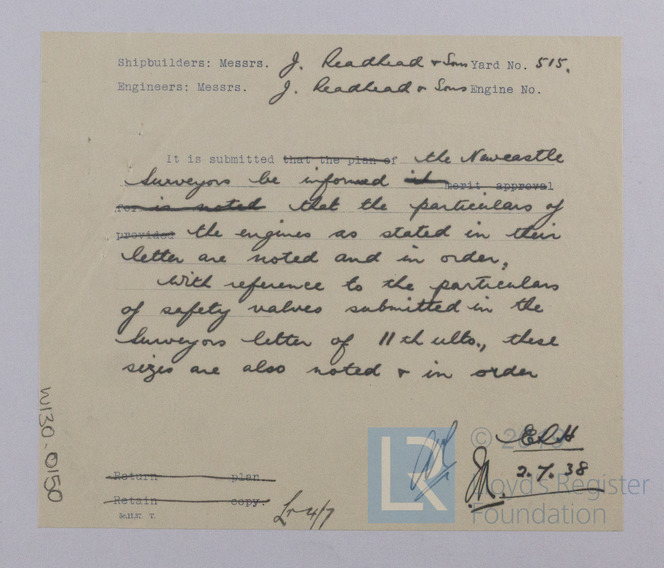 Shipbuilders: Messrs. J. Readhead & Sons Yard No. 515.
Engineers: Messrs. J. Readhead & Sons Engine No.
It is submitted that the plan of the Newcastle
Surveyors be informed it merit approval
for is noted that the particulars of
provided the engines as stated in their
letter are noted and in order,
With reference to the particulars
of safety valves submitted in the
Surveyors letter of 11th ulto., these
sizes are also noted & in order
W130-0150
© 20
LR
Lloyd's Register
Foundation
2.7.38
Return plan.
Retain copy.
Lr 4/7